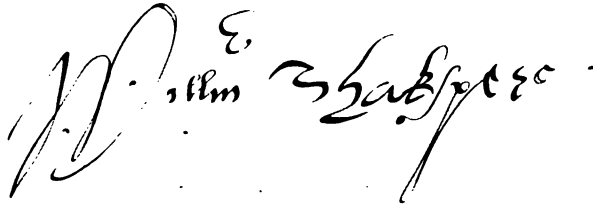 Willm Shakspere